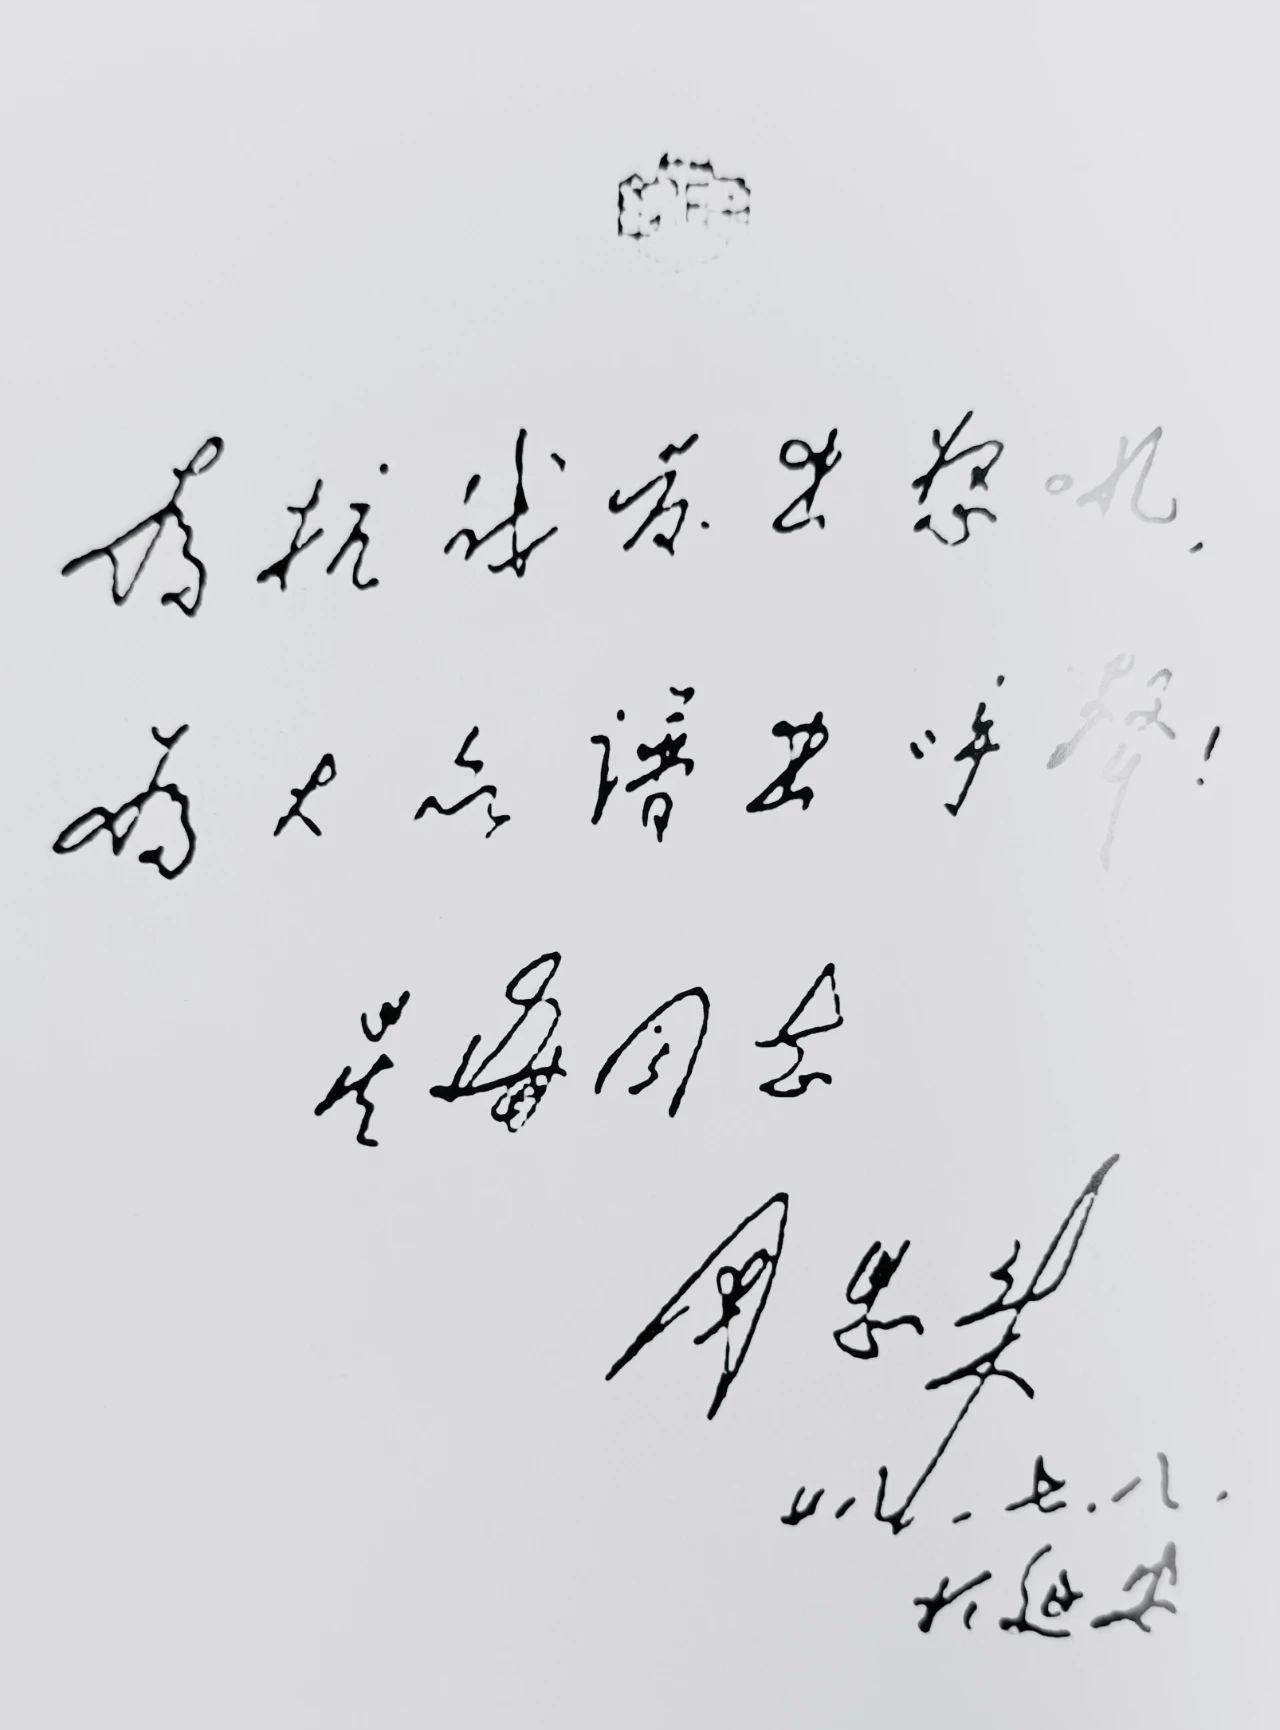 为抗战发出怒吼,
为大众谱出呼聲!
星海同志
周恩来
廿八.七.八.
於延安